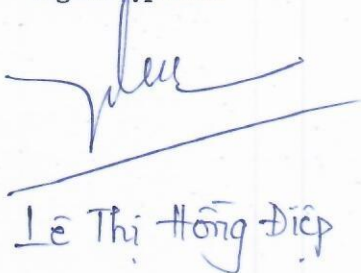 Lê Thị Hồng Điệp